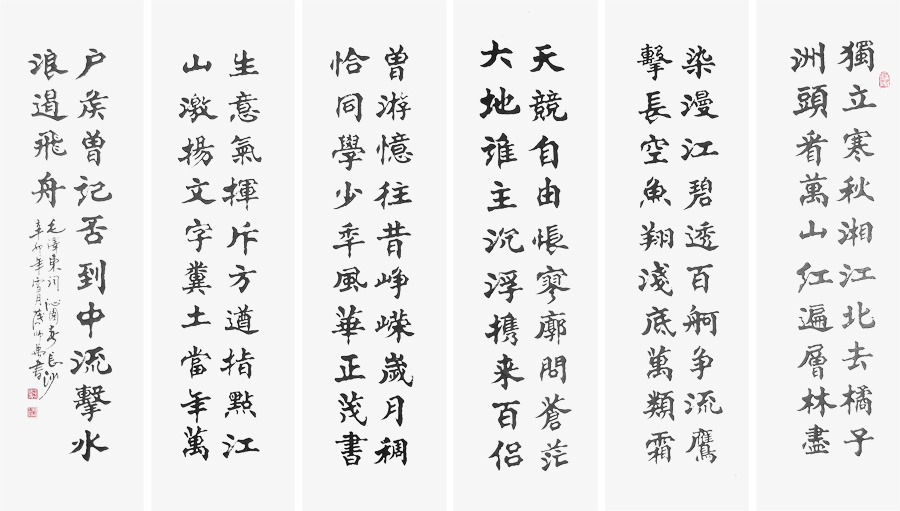 獨立寒秋湘江北去橘子
洲頭看萬山紅遍層林盡
染漫江碧透百舸争流鷹
擊長空魚翔淺底萬類霜
天競自由悵寥廓問蒼茫
大地谁主沉浮携来百侣
曾游憶往昔峥嵘歲月稠
恰同學少年風華正茂書
生意氣揮斥方遒指點江
山激揚文字糞土當年萬
户侯曾記否到中流擊水
浪遏飛舟
毛澤東詞沁園春長沙
辛卯年雪月